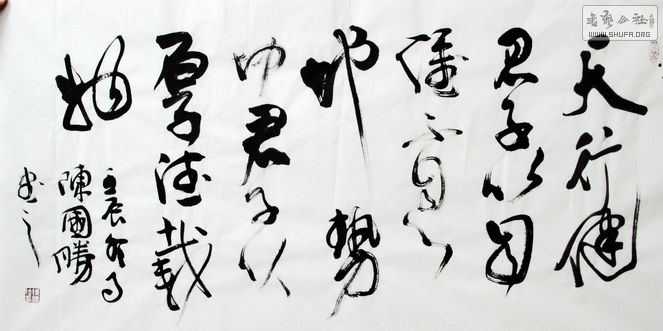 天行健
君子以自
强不息
地势
坤君子以
厚德載
物
壬辰冬月
陳國勝
书之
書藝公社
WWW.SHUFA.ORG